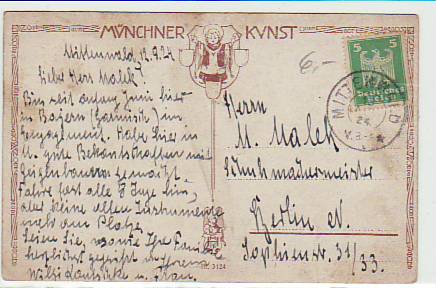 MÜNCHNER KVNST
Mittenwald 12.9.24
Liebe Herr Malek!
Bin seit anfang Juni hier
in Bayern (Garmisch) im
Engagement. Habe hier in
M. gute Bekantschaften mit
Geigenbauern gemacht.
Fahre fast alle 8 Tage hin,
aber keine alten Instrumente
mehr am Platze.
Seien Sie, sowie Ihre Familie
herzlichst gegrüßt von Ihrem
u. Frau.
6,-
5 5
Deutsches
Reich
MITTENWALD
24
Herrn
M. Malek
Schuhmachermeister
Berlin N.
Sophienstr. 31/33.
Nr. 3124